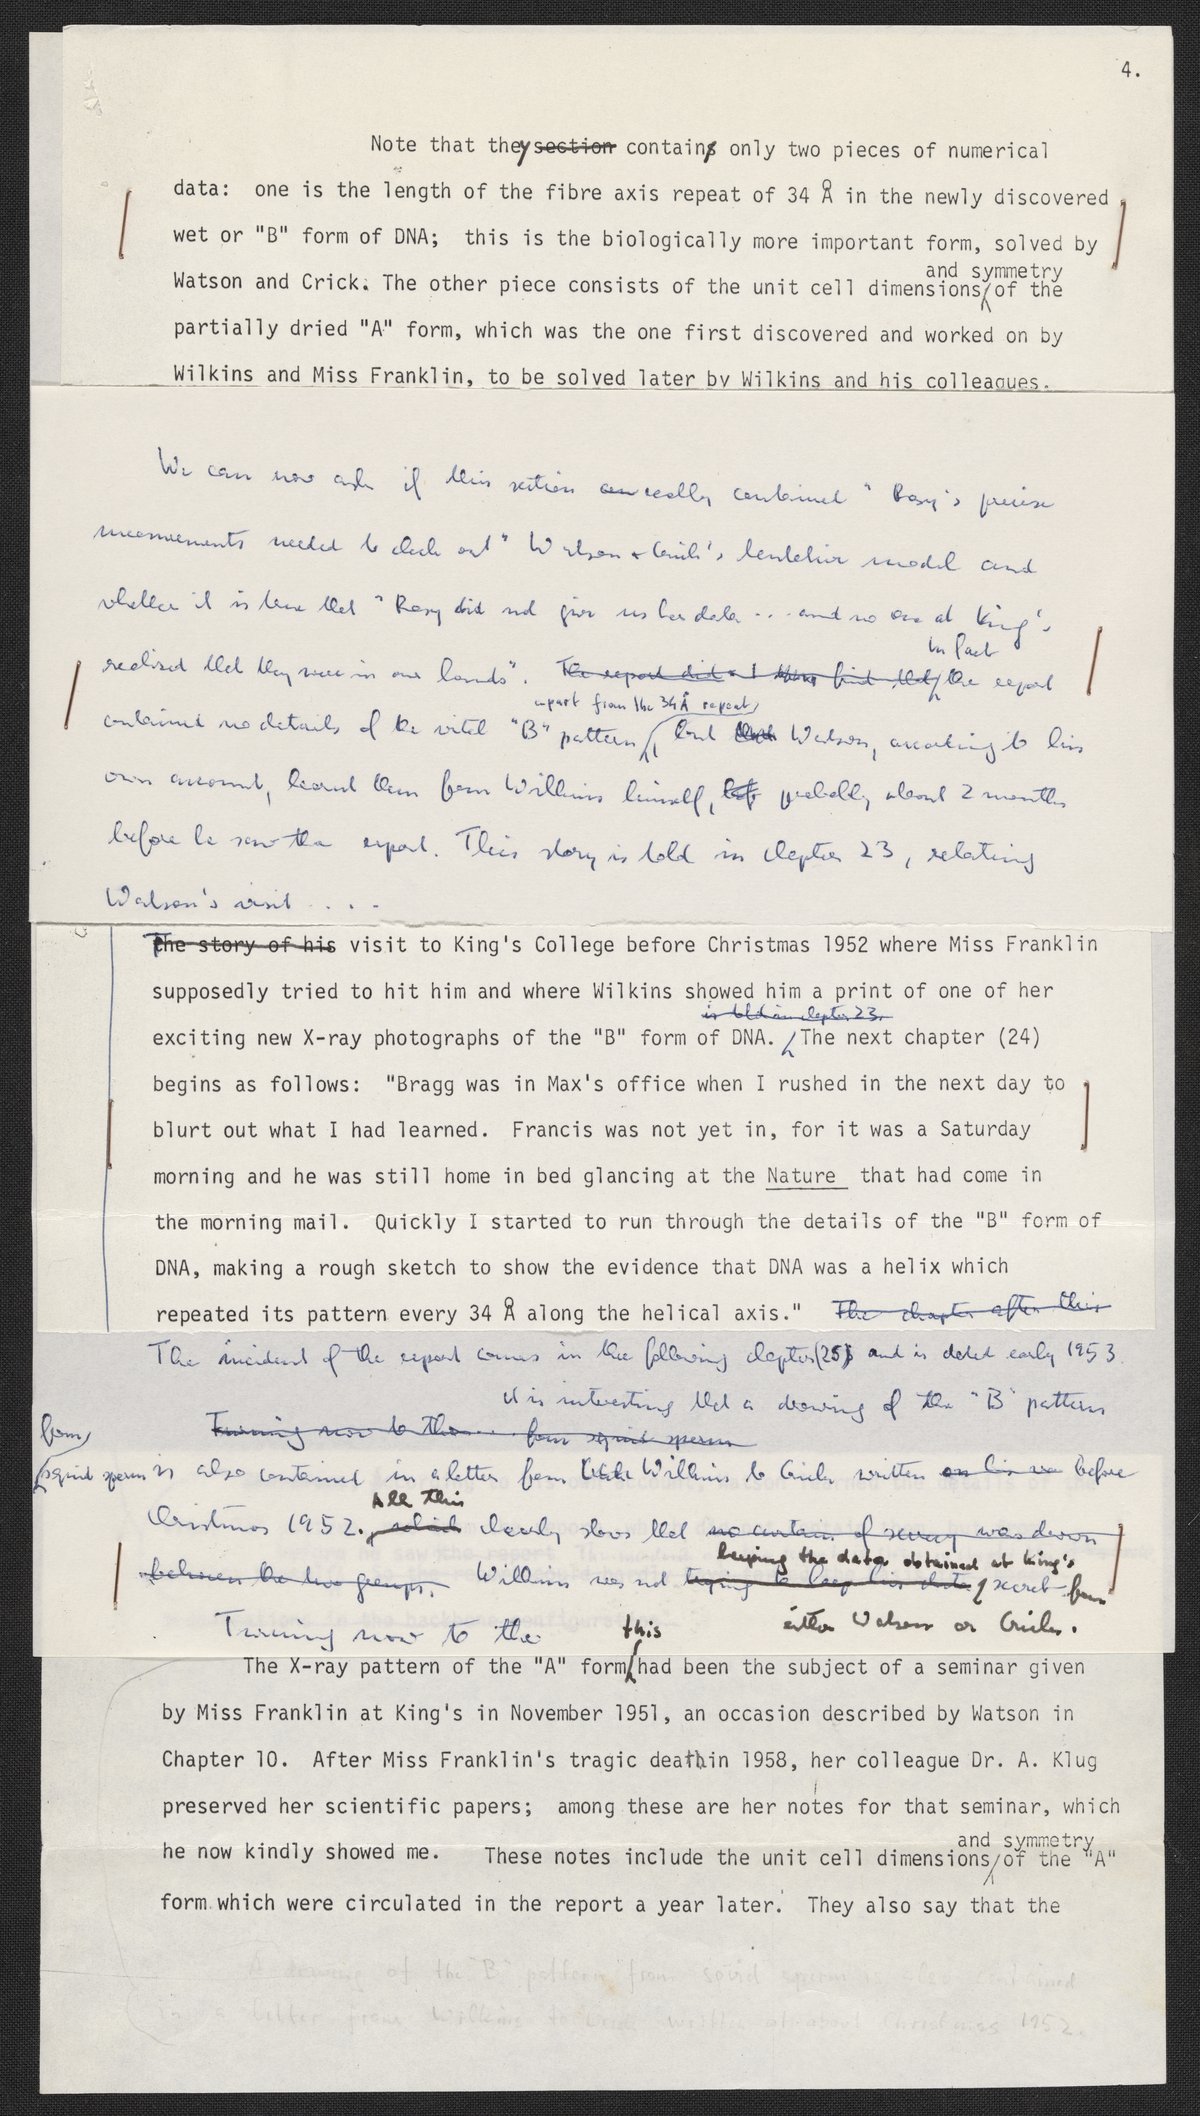 4.
Note that they section contains only two pieces of numerical
data: one is the length of the fibre axis repeat of 34 Å in the newly discovered
wet or "B" form of DNA; this is the biologically more important form, solved by
and symmetry
Watson and Crick. The other piece consists of the unit cell dimensions of the
partially dried "A" form, which was the one first discovered and worked on by
Wilkins and Miss Franklin, to be solved later by Wilkins and his colleagues.
We can now ask if this section really contained "Rosy's precise
measurements needed to check out" Watson + Crick's tentative model and
whether it is true that "Rosy did not give us her data ... and no one at King's
in fact
realised that they were in our hands". The report did the report
apart from the 34Å repeat,
contained no details of the vital "B" pattern, but Watson, according to his
own account, learnt them from Wilkins himself, probably about 2 months
before he saw the report. This story is told in chapter 23, relating
Watson's visit ....
The story of his visit to King's College before Christmas 1952 where Miss Franklin
supposedly tried to hit him and where Wilkins showed him a print of one of her
is told in chapter 23.
exciting new X-ray photographs of the "B" form of DNA. The next chapter (24)
begins as follows: "Bragg was in Max's office when I rushed in the next day to
blurt out what I had learned. Francis was not yet in, for it was a Saturday
morning and he was still home in bed glancing at the Nature that had come in
the morning mail. Quickly I started to run through the details of the "B" form of
DNA, making a rough sketch to show the evidence that DNA was a helix which
repeated its pattern every 34 Å along the helical axis." The chapter after this
The incident of the report comes in the following chapter (25) and is dated early 1953.
It is interesting that a drawing of the "B" pattern
from Turning now to the ... from squid sperm
squid sperm is also contained in a letter from Wilkins to Crick written before
All this
Christmas 1952. which clearly shows that no curtain of secrecy was drawn
keeping the data obtained at King's
between the two groups. Wilkins was not trying to keep his data secret from
either Watson or Crick.
Turning now to the
this
The X-ray pattern of the "A" form had been the subject of a seminar given
by Miss Franklin at King's in November 1951, an occasion described by Watson in
Chapter 10. After Miss Franklin's tragic death in 1958, her colleague Dr. A. Klug
preserved her scientific papers; among these are her notes for that seminar, which
and symmetry
he now kindly showed me. These notes include the unit cell dimensions of the "A"
form which were circulated in the report a year later. They also say that the
A drawing of the "B" pattern from squid sperm is also contained
in a letter from Wilkins to Crick written at about Christmas 1952.